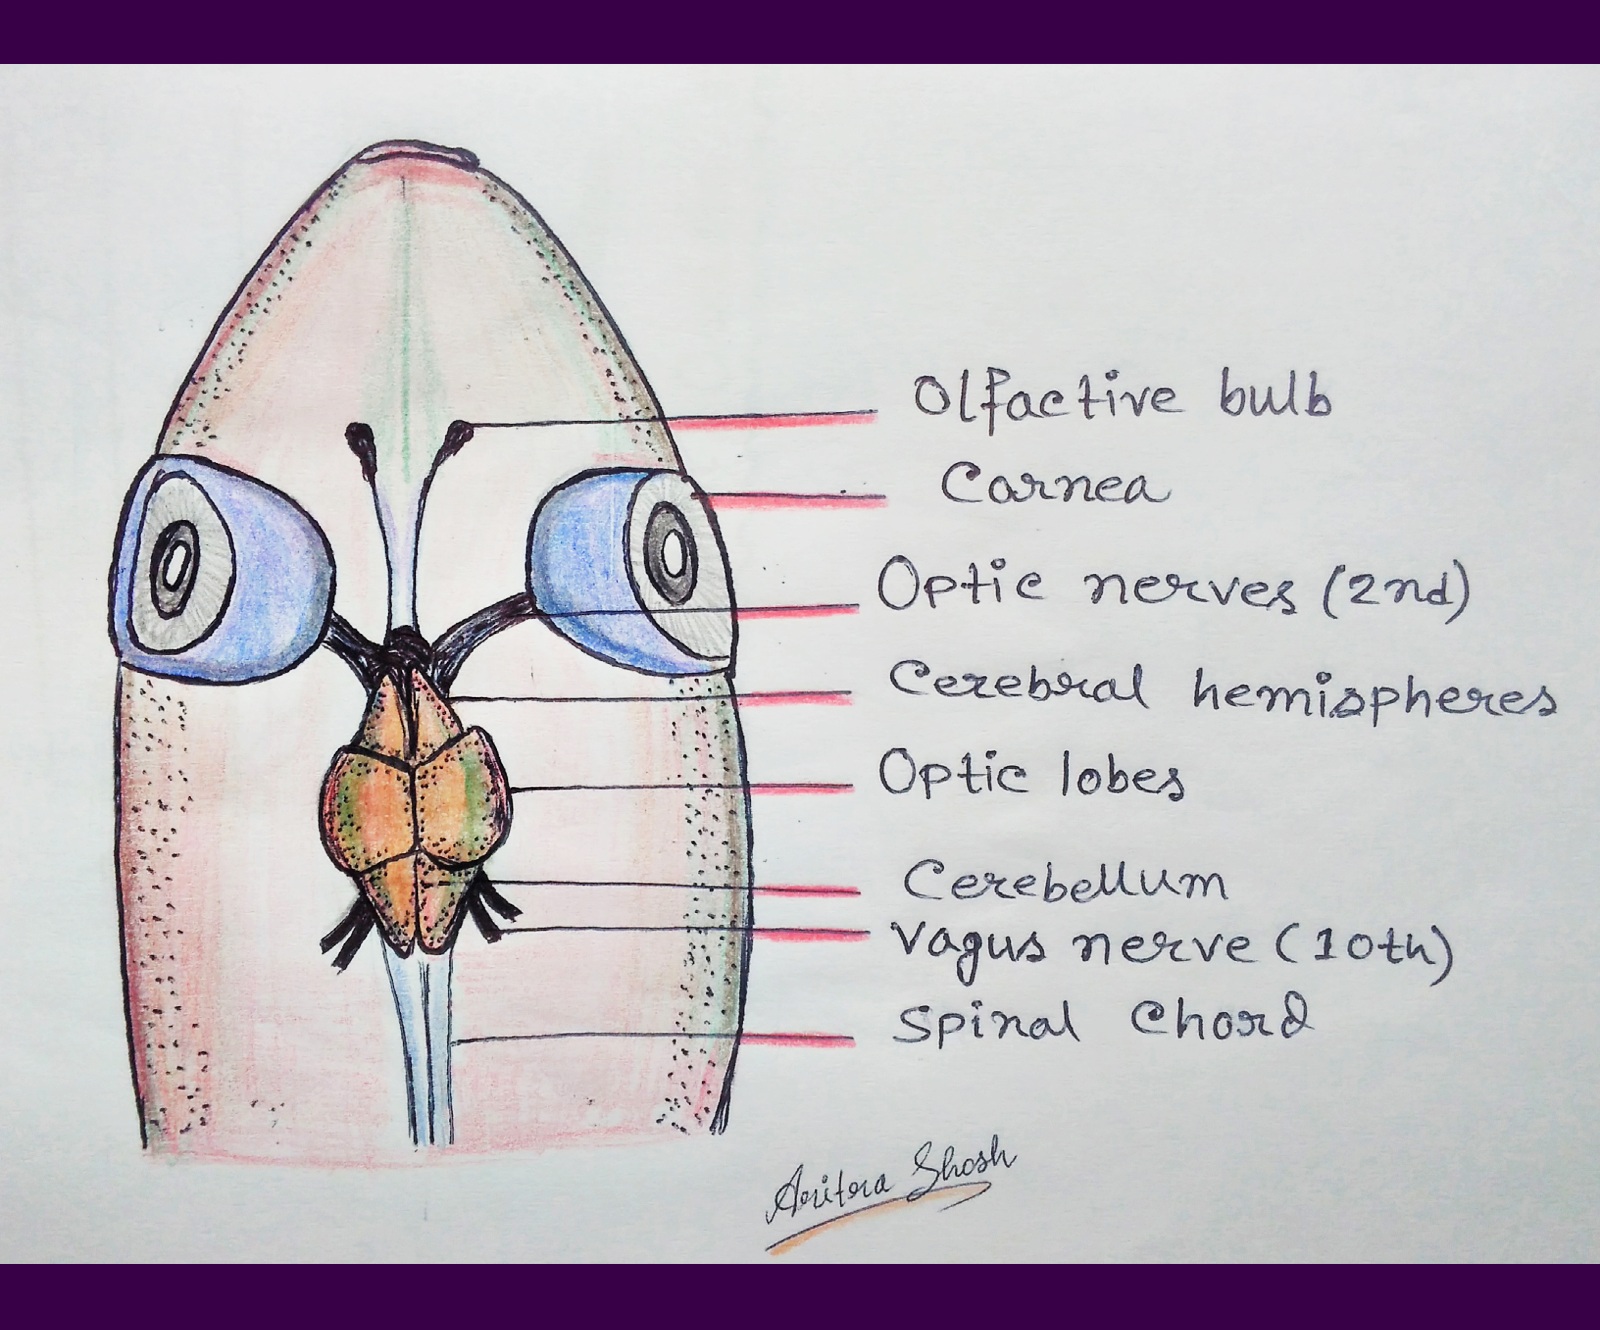 Olfactive bulb
Cornea
Optic nerves (2nd)
Cerebral hemispheres
Optic lobes
Cerebellum
Vagus nerve (10th)
Spinal Chord
Aritra Ghosh